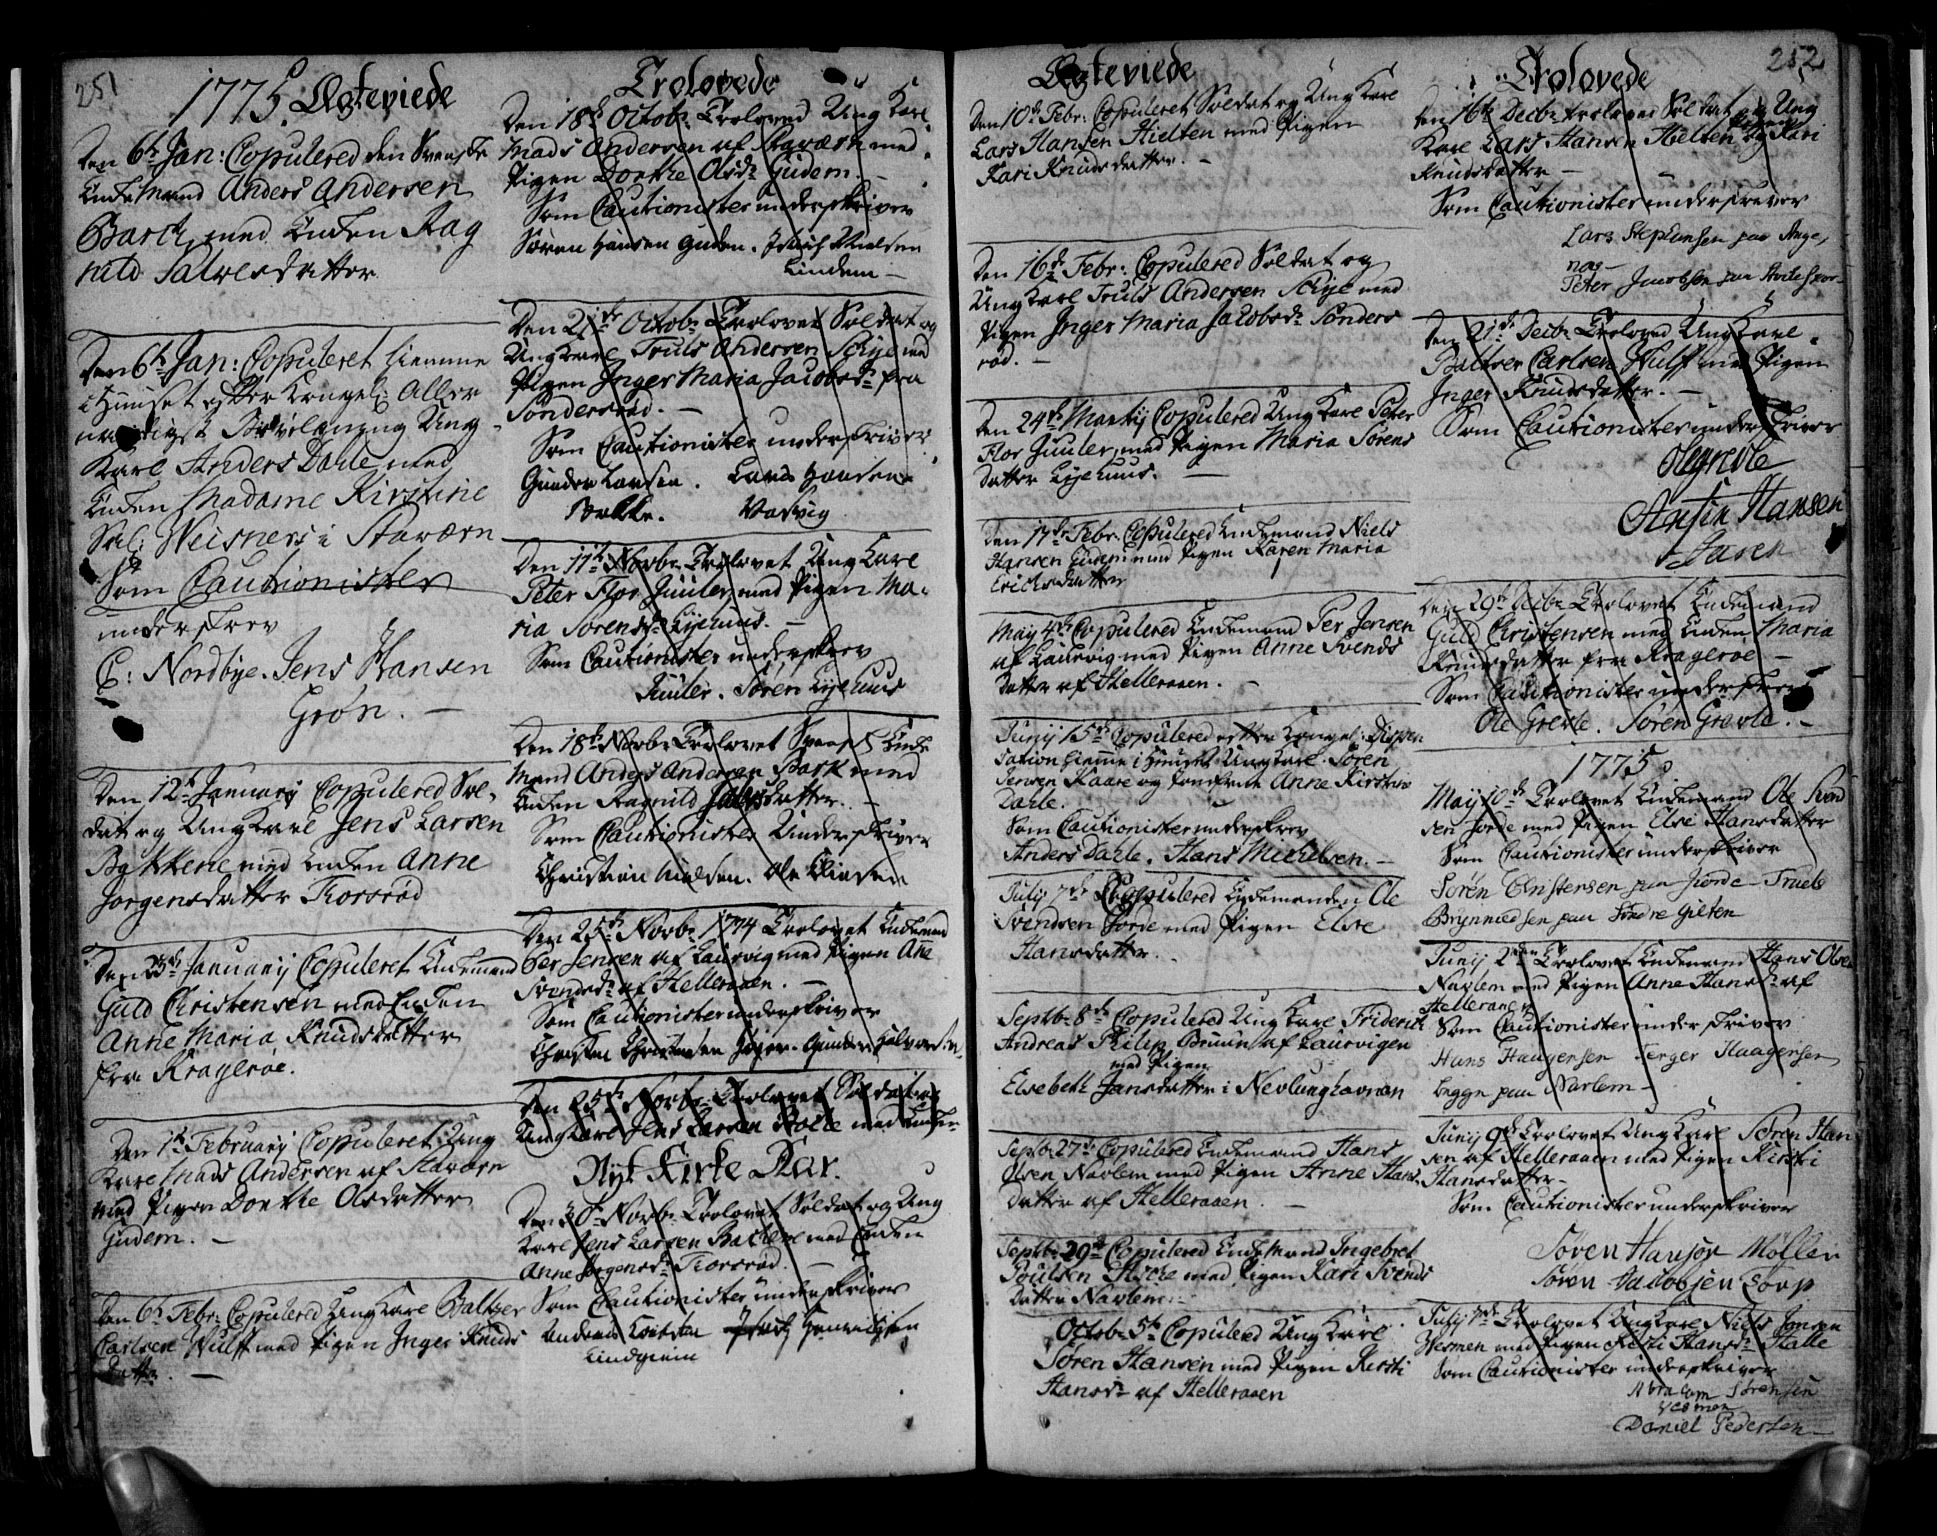 251
1775. Ægteviede
Den 6te Jan: Copulered den Svenske
Enkemand Anders Andersen
Barck med Enken Rag
nild Salvesdatter
Den 6te Jan: Copuleret hiemme
i Huuset efter Kongel: Aller
naadigst Bevilgning Ung
Karl Anders Darle med
Enken Madame Kirstine
Sal: Weisners i Staværn
Som Cautionister
underskrev
C: Nordbye. Jens Hansen
Grøn. —
Den 12te January Copulered Sol-
dat og Ung Karl Jens Larsen
Bakkene med Enken Anne
Jorgensdatter Torsrød
Den January Copuleret Enkemand
Guld Christensen med Enken
Anne Maria Knudsdatter
fra Kragerøe.
Den 1te February Copuleret Ung
Karl Mads Andersen af Staværn
med Pigen Dorthe Olsdatter
Gudem. —
Den 6te Febr: Copulered Ung Karl Baltzer
Carlsen Wulff med Pigen Inger Knuds
datter. —
Trolovede
Den 18de Octobr Troloved Ung Karl
Mads Andersen af Staværn med
Pigen Dorthe Olsdr Gudem. —
Som Cautionister underskriver
Søren Hansen Gudem. Nielsen
Lindem —
Den 21de Octobr Trolovet Soldat og
Ung Karl Truls Andersen Skye med
Pigen Inger Maria Jacobsdr fra
Sønderrød. —
Som Cautionister underskriver
Gunder Larsen. Lars Hansen
Bakke. Vasvig
Den 17de Novbr Trolovet Ung Karl
Peter Flor Juuler med Pigen Ma-
ria Sørensdr Lyehuus. —
Som Cautionister underskrev
Juuler. Søren Lyehuus
Den 18de Novbr Trolovet Svensk Enke
Mand Anders Andersen Bark med
Enken Ragnild Salvesdatter. —
Som Cautionister Underskriver
Christian Nielsen. Ole Olsen
Den 25de Novbr 1774 Trolovet Enkemand
Per Jensen af Laurvig med Pigen Ane
Svendsdr af Helleraaen. —
Som Cautionister underskriver
Christen Christensen. Gunder Halvorsen
Den 25de Novbr Trolovet Soldat og
Ung Karl Jens Larsen med Enken
Nyt Kirke Aar.
Den Novbr Trolovet Soldat og Ung
Karl Jens Larsen Bakkene med Enken
Anne Jorgensdr Torsrød. —
Som Cautionister underskriver
Anders
252
Ægteviede
Den 10de Febr: Copuleret Soldat og Ung Karl
Lars Hansen Hielten med Pigen
Kari Knudsdatter. —
Den 16de Febr: Copulered Soldat og
Ung Karl Truls Andersen Skye med
Pigen Inger Maria Jacobsdr Sønders
rød. —
Den 24de Martij Copulered Ung Karl Peter
Flor Juuler, med Pigen Maria Sørens
datter Lyehuus. —
Den 17de Febr: Copulered Enkemand Niels
Hansen Gudem med Pigen Karen Maria
Ericksdatter
May 4de Copulered Enkemand Per Jensen
af Laurvig med Pigen Anne Svends
datter af Helleraaen. —
Junij 15de Copulered efter Kongel: Dispen
sation hiemme i Huuset Ung Karl Søren
Jensen Kaare og Jomfrue Anne Kirstine
Darle.
Som Cautionister underskrev
Anders Darle. Hans Michelsen. —
July 7de Copulered Enkemanden Ole
Svendsen Jorde med Pigen Else
Hansdatter.
Septbr 8de Copulered Ung Karl Friderich
Andreas Philip Bruun af Laurvigen
med Pigen
Elsebeth Jansdatter i Nevlunghavnen
Septbr 27de Copulered Enkemand Hans
Olsen Navlem med Pigen Anne Hans-
datter af Helleraaen. —
Septbr 29de Copulered Enkemand Ingebret
Poulsen Aske med Pigen Kari Svends
datter Navlem.
Octobr 5te Copulered Ung Karl
Søren Hansen med Pigen Kirsti
Hansdr af Helleraaen
Trolovede
Den 16de Decbr trolover Soldat og Ung
Karl Lars Hansen Hielten og Pigen Kari
Knudsdatter —
Som Cautionister underskrever
Lars Stephansen paa
Peter Jacobsen paa
Den 21de Decbr Troloved Ung Karl
Baltzer Carlsen Wulff med Pigen
Inger Knudsdatter. —
Som Cautionister underskriver
Hansen
Den 29de Decbr Trolovet Enkemand
Guld Christensen med Enken Maria
Knudsdatter fra Krageroe —
Som Cautionister underskrev
Ole Grevle. Søren Grevle. —
1775
May 10de Trolovet Enkemand Ole Svend
sen Jorde med Pigen Else Hansdatter
Som Cautionister underskriver
Sørén Christensen paa Jorde Truels
Brynnildsen paa Søndre Gilten
Junij 2den Trolovet Enkemand Hans Olsen
Navlem med Pigen Anne Hansdr af
Helleraaen
Som Cautionister underskriver
Hans Haagensen Terger Haagensen
begge paa Navlem —
Junij 9de Trolovet Ung Karl Søren Han
sen af Helleraaen med Pigen Kirsti
Hansdatter —
Som Cautionister underskriver
Søren Hansøn Møllen
Søren Jacobsen Torp
July 1ste Trolovet Ung Karl Niels Jensen
Vesmen med Pigen Kirsti Hansdr Halle
Som Cautionister underskriver
Abraham Sørensen
Vesmen
Daniel Pedersen